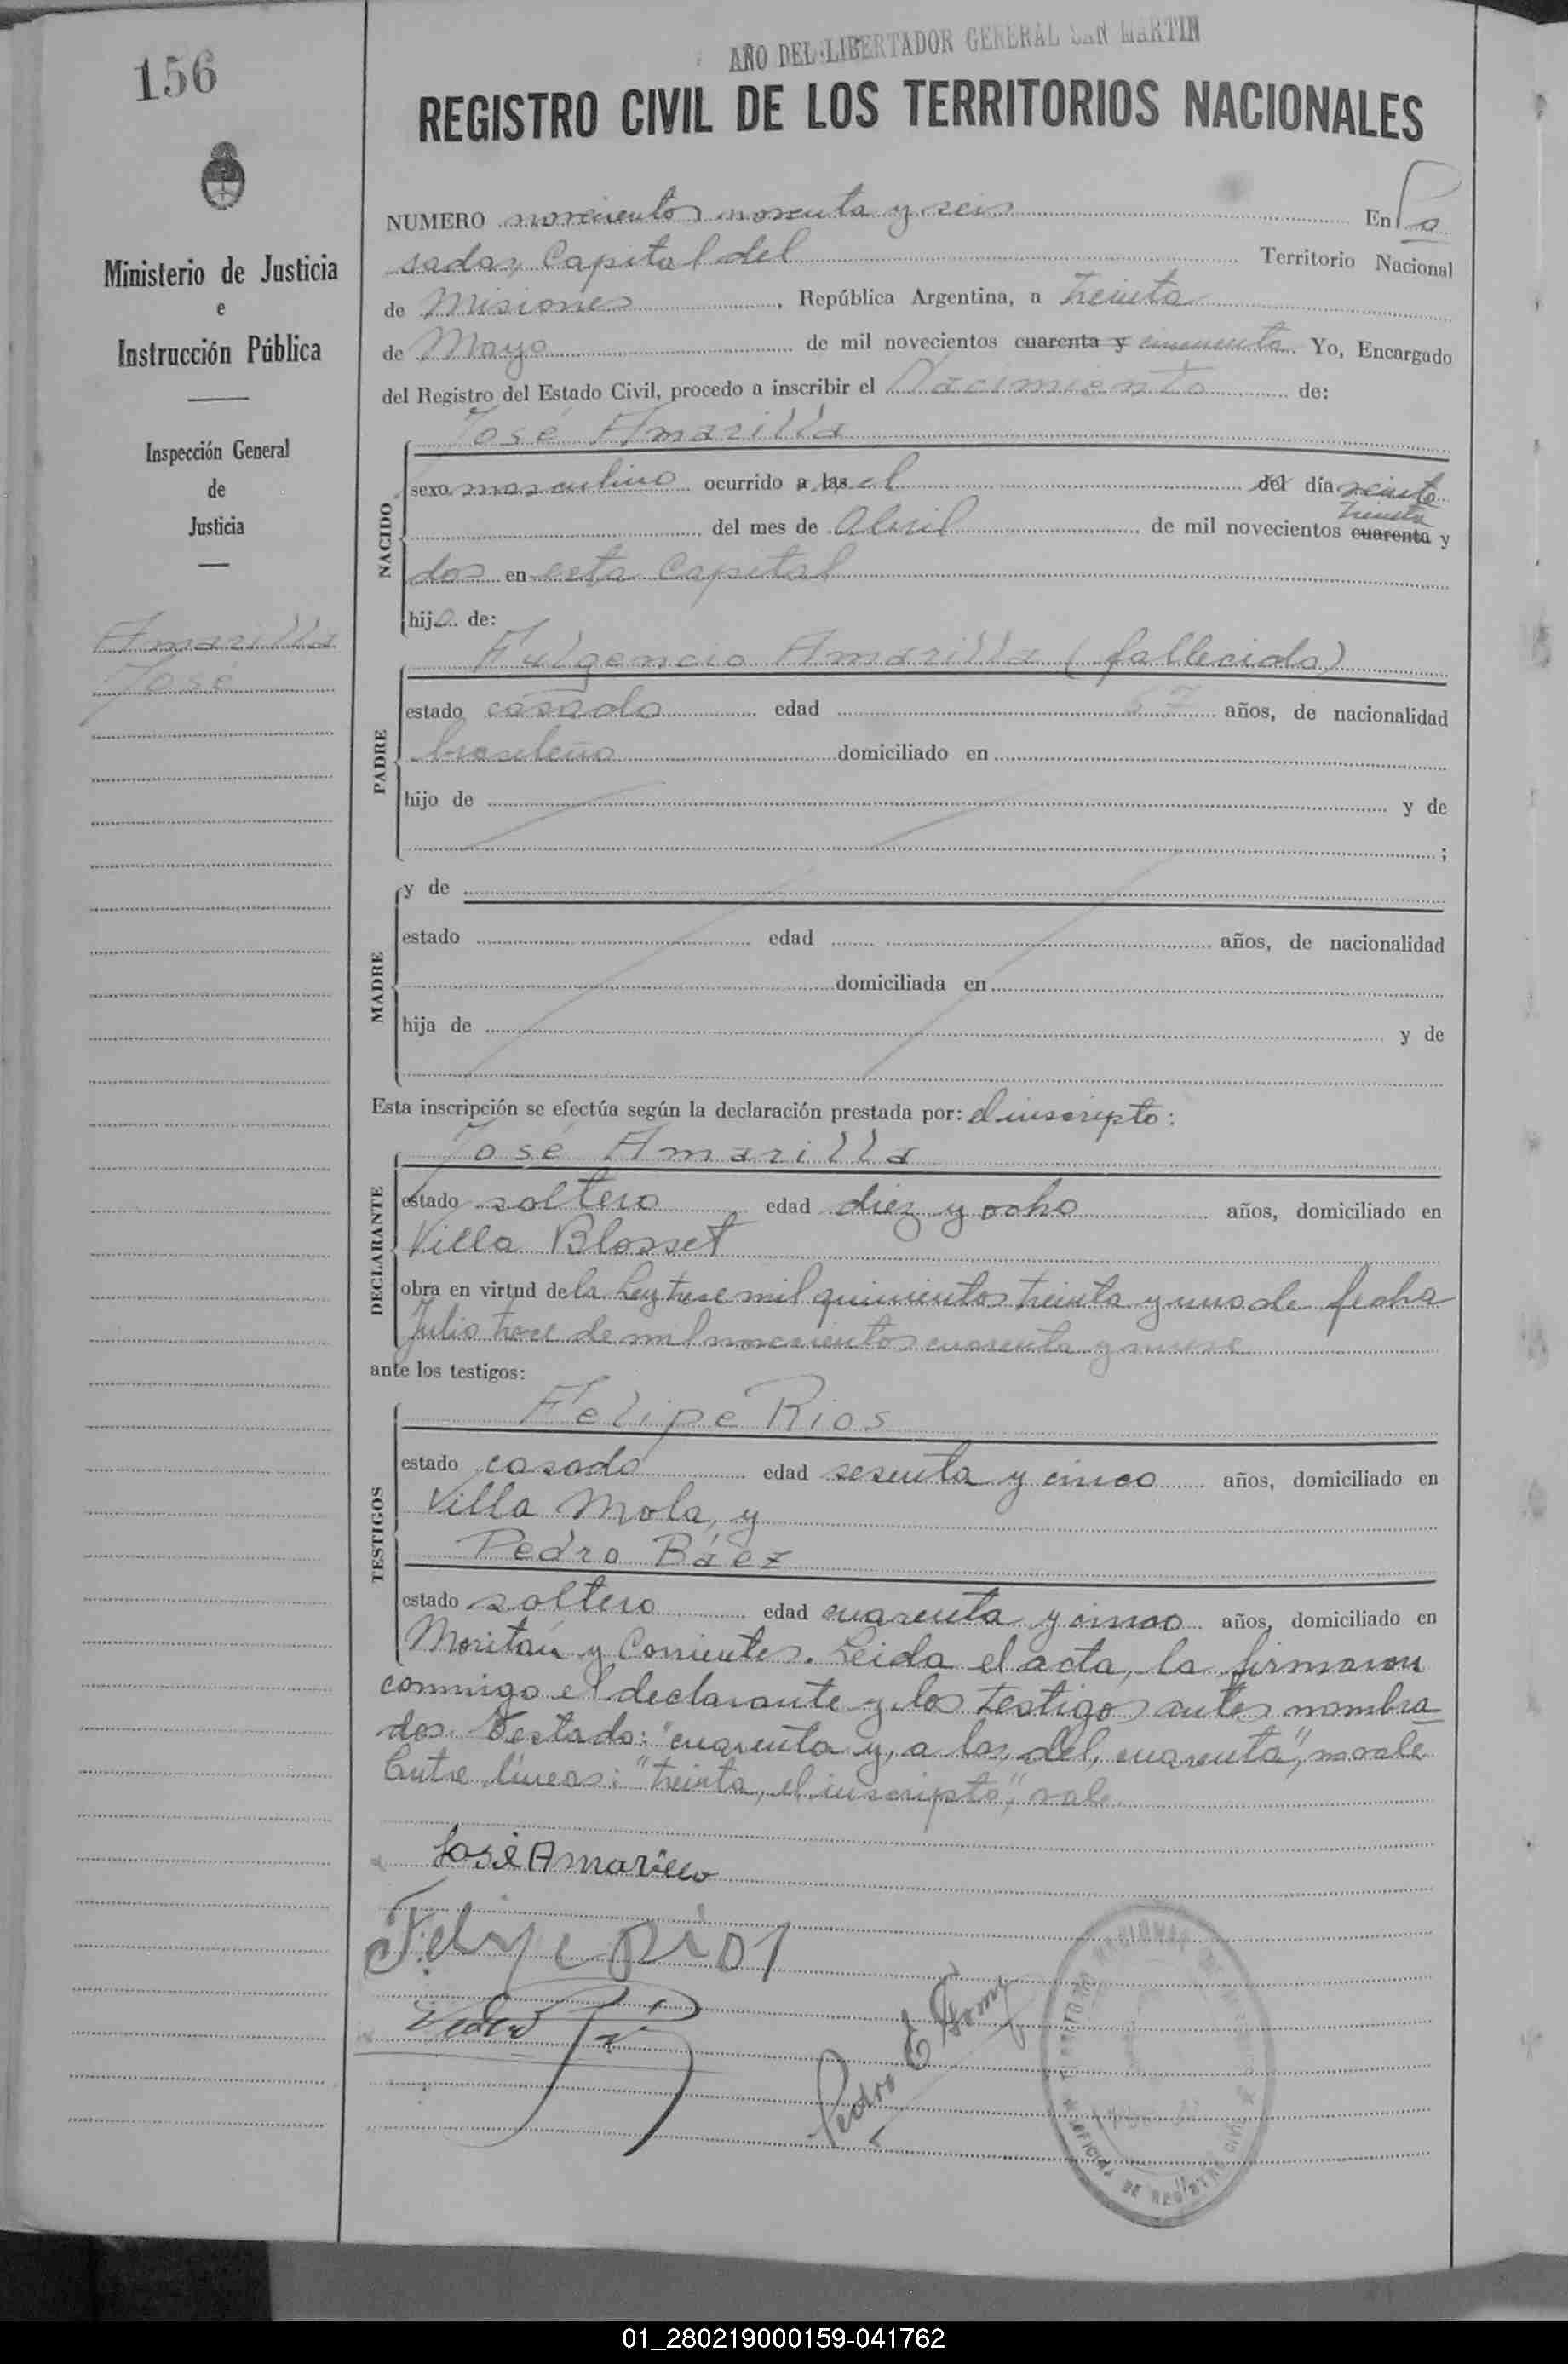 156
AÑO DEL LIBERTADOR GENERAL SAN MARTIN
REGISTRO CIVIL DE LOS TERRITORIOS NACIONALES
Ministerio de Justicia
e
Instrucción Pública
Inspección General
de
Justicia
Amarilla
José
NUMERO novecientos noventa y seis En Po
sadas, Capital del Territorio Nacional
de Misiones, República Argentina, a treinta
de Mayo de mil novecientos cuarenta y cincuenta Yo, Encargado
del Registro del Estado Civil, procedo a inscribir el Nacimiento de:
NACIDO
José Amarilla
sexo masculino ocurrido a las el del día veinte
treinta
del mes de Abril de mil novecientos cuarenta y
dos en esta Capital
hijo de:
PADRE
Fulgencio Amarilla (fallecido)
estado casado edad 57 años, de nacionalidad
brasileño domiciliado en
hijo de y de
;
MADRE
y de
estado edad años, de nacionalidad
domiciliada en
hija de y de
Esta inscripción se efectúa según la declaración prestada por: el inscripto:
DECLARANTE
José Amarilla
estado soltero edad diez y ocho años, domiciliado en
Villa Blosset
obra en virtud de la Ley trece mil quinientos treinta y uno de fecha
Julio trece de mil novecientos cuarenta y nueve
ante los testigos:
TESTIGOS
Felipe Rios
estado casado edad sesenta y cinco años, domiciliado en
Villa Mola, y
Pedro Báez
estado soltero edad cuarenta y cinco años, domiciliado en
Moritán y Corrientes. Leida el acta, la firmaron
conmigo el declarante y los testigos antes nombra
dos. Testado: "cuarenta y, a las, del, cuarenta", no vale
Entre líneas: "treinta, el inscripto", vale.
José Amarilla
Felipe Rios
Pedro
Pedro E Gomez
OFICINA DE REGISTRO CIVIL
01_280219000159-041762